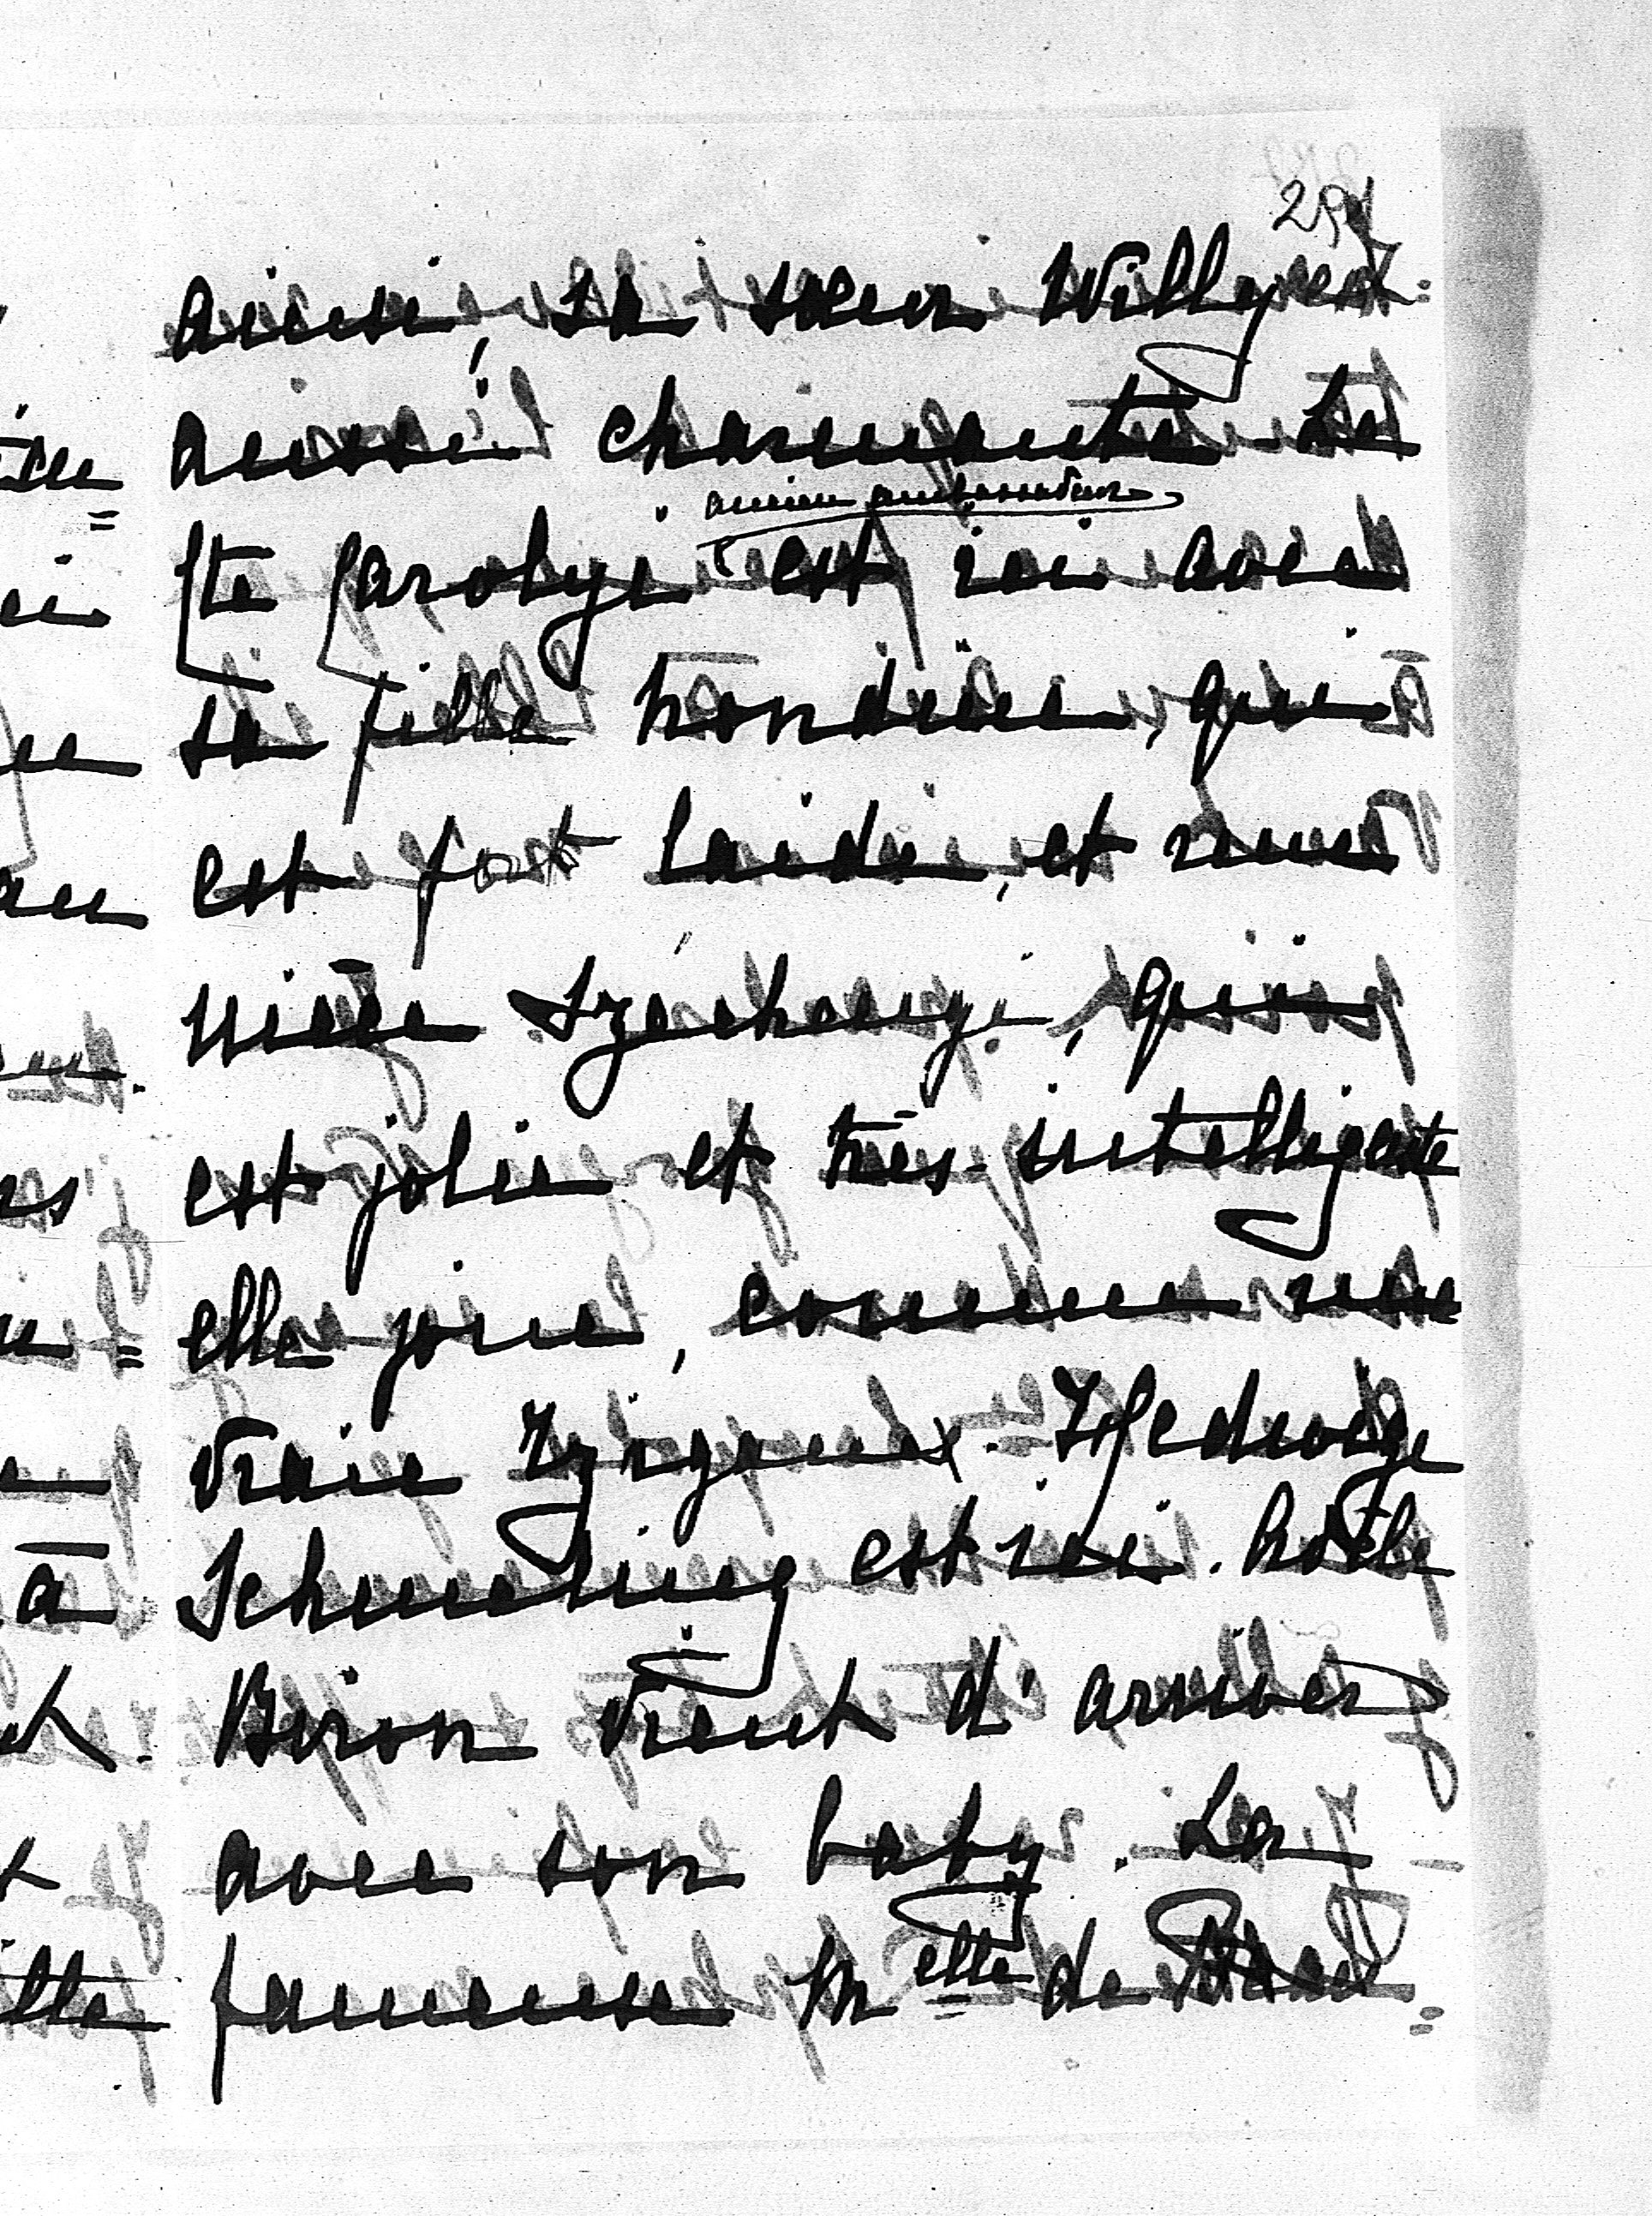 297
ainsi, sa sœur Willy est
aussi charmante. Le
ancien ambassadeur
Cte Carolyi est ici avec
sa fille Nandine, qui
est fort laide, et une
nièce Széchenyi, qui
est jolie et très-intelligente
elle joue, comme une
vraie Tzigane. Hedwige
Schmeling est ici.
Biron vient d'arriver
avec son baby. La
fameuse Melle de